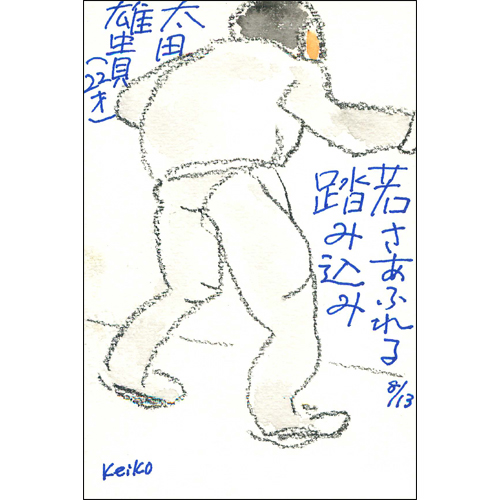 太田
雄貴
(22才)
若さあふれる
踏み込み
8/13
Keiko